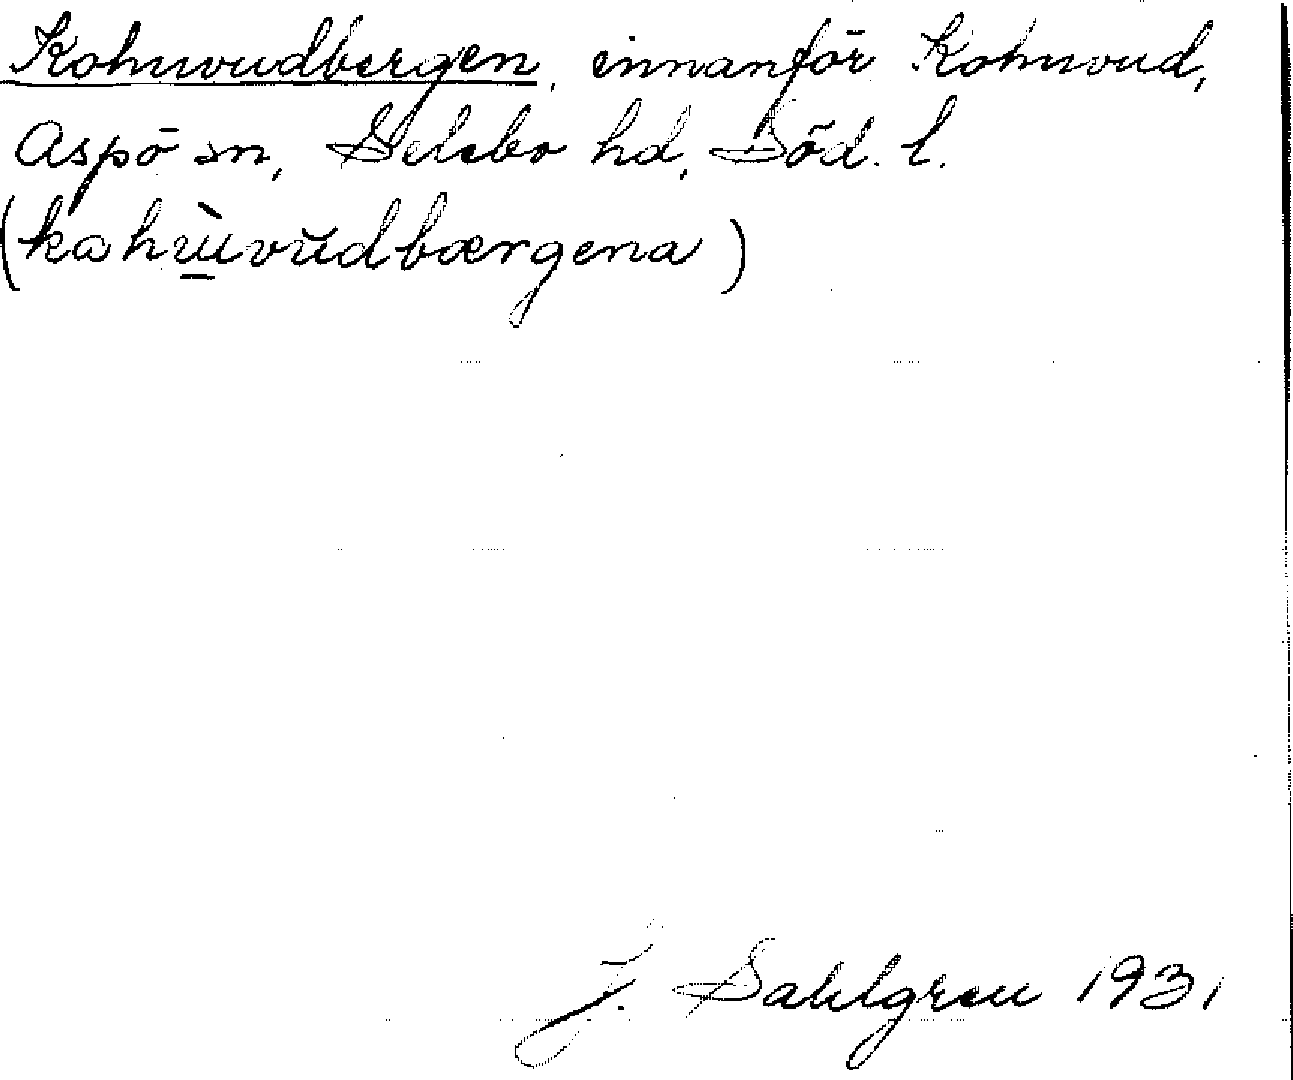 Kohuvudbergen, innanför Kohuvud,
Aspö sn, Selebo hd, Söd. l.
(kahùvŭdbærgena)
J. Sahlgren 1931